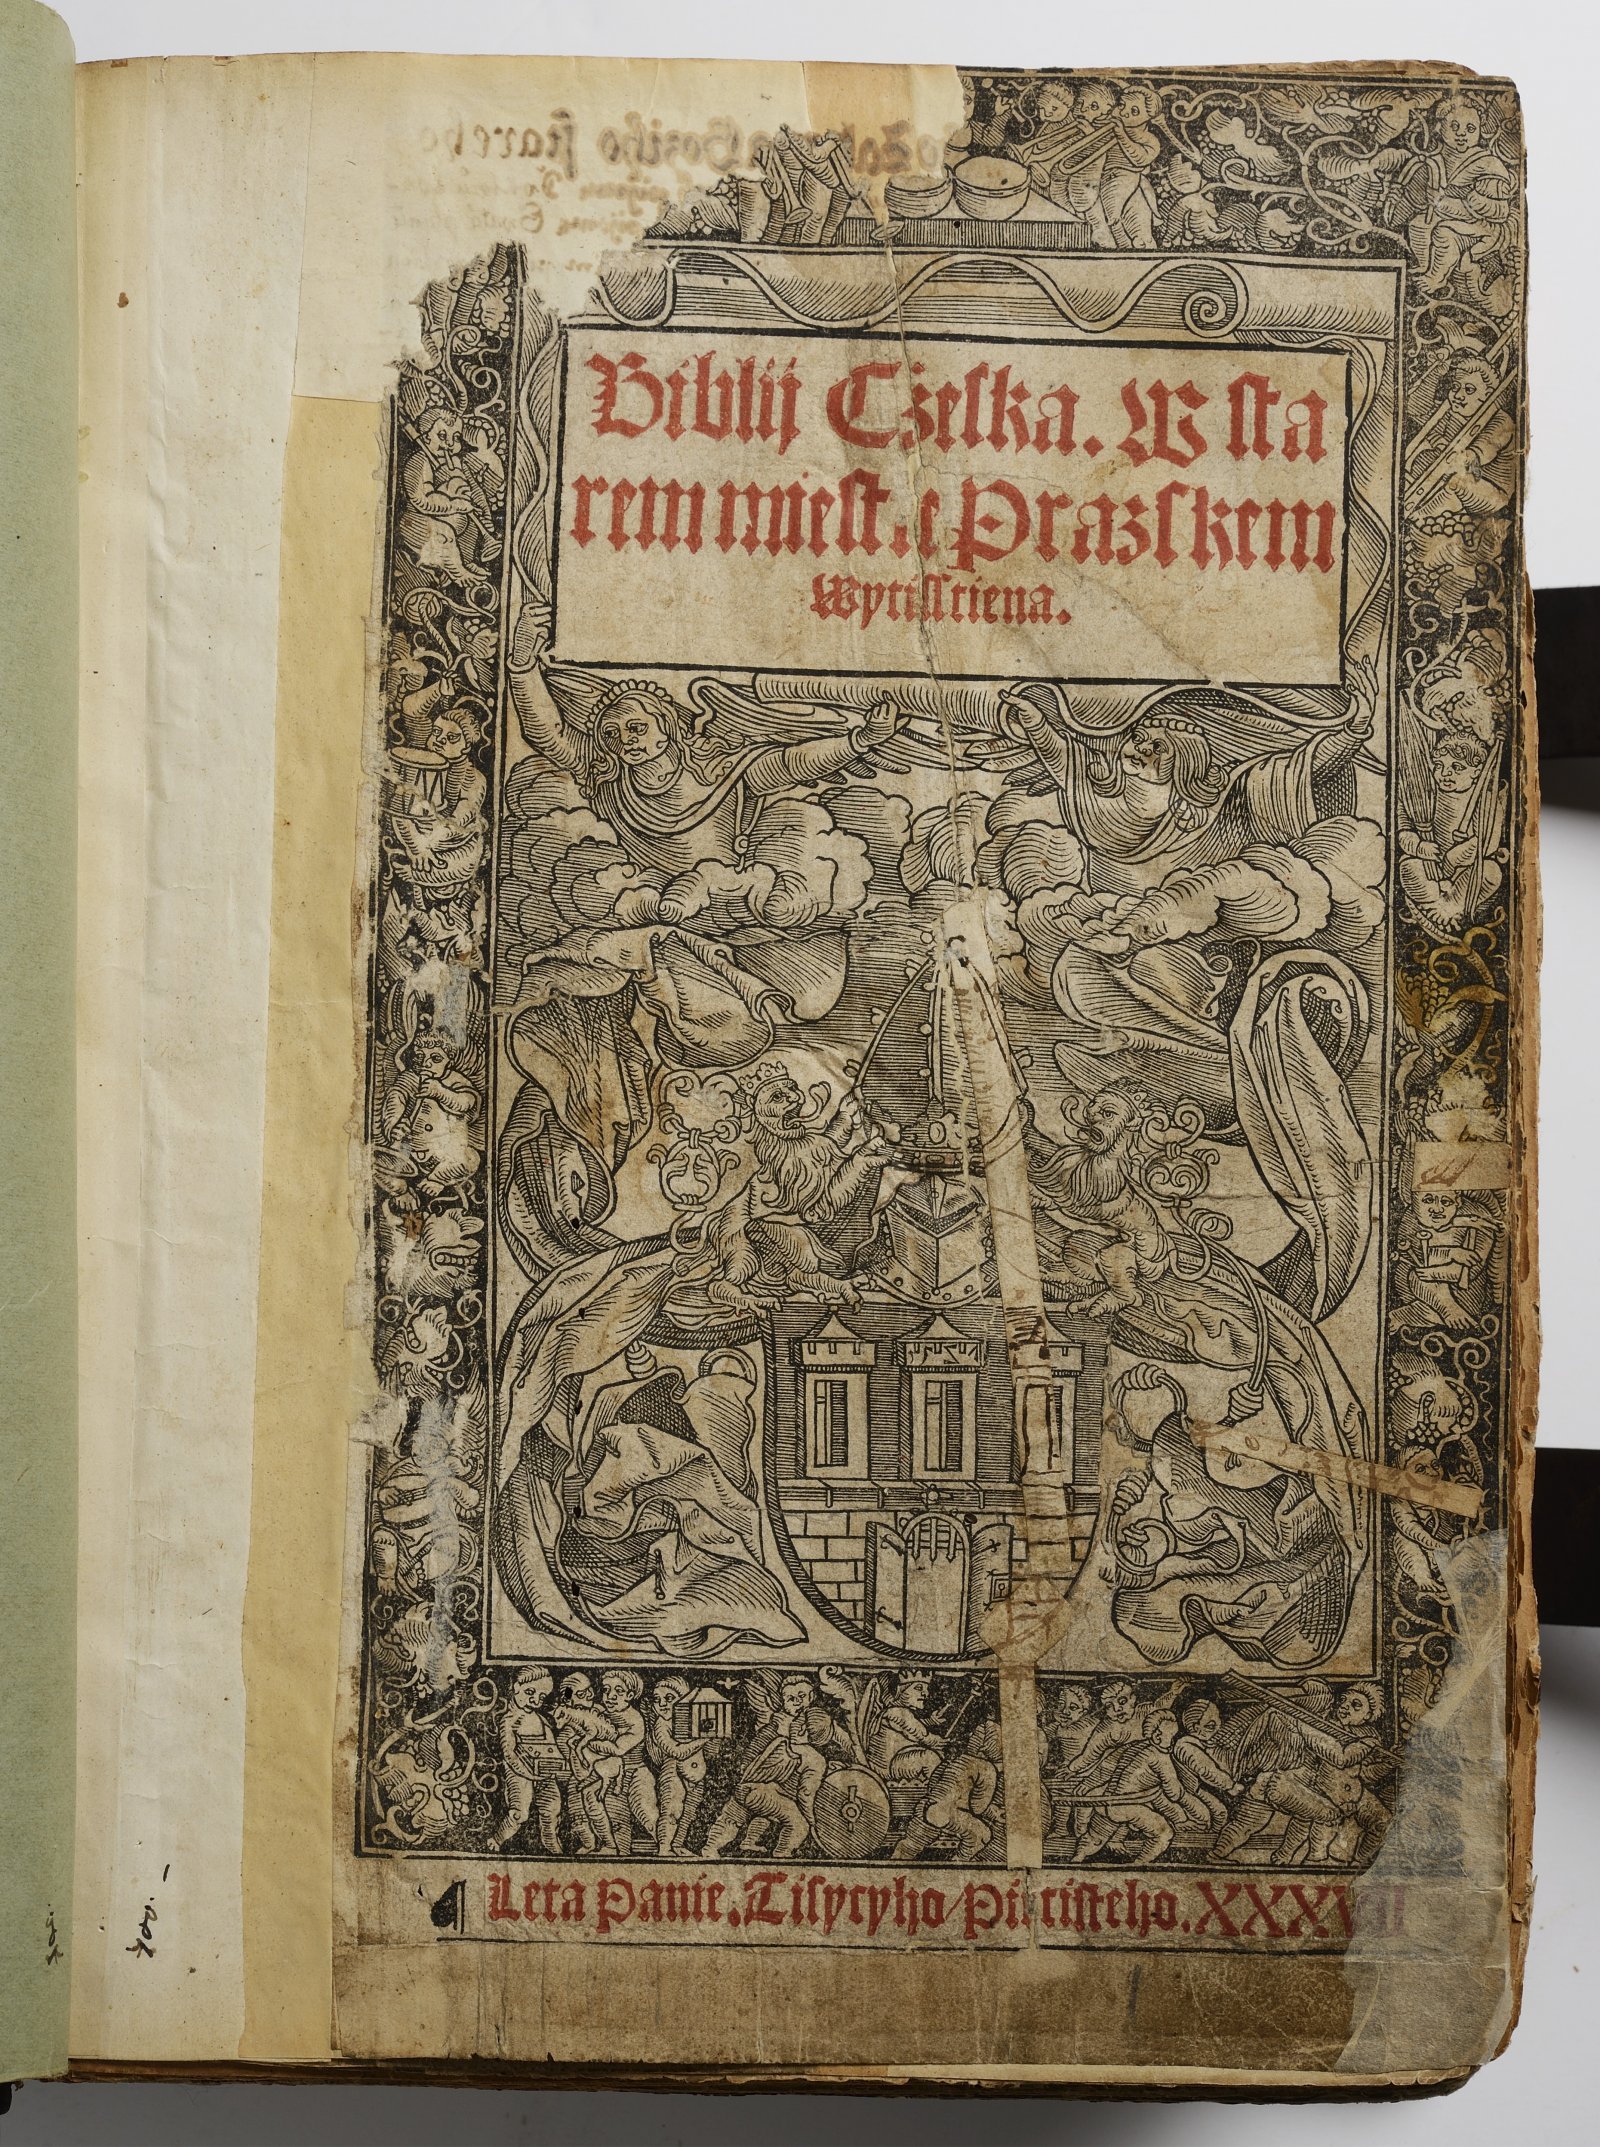 Biblij Czeska. W sta
rem miestie Prazskem
Wytisstiena.
¶ Leta Panie. Tisycyho / Pietisteho. XXXVII